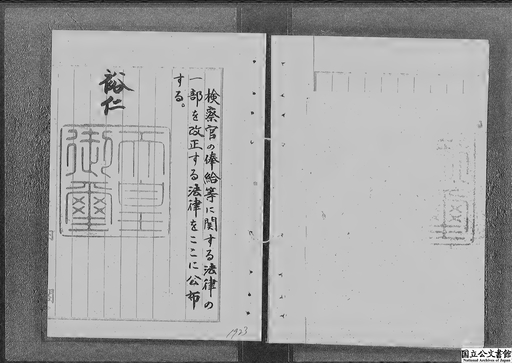 検察官の俸給等に関する法律の
一部を改正する法律をここに公布
する。
裕仁
天皇
御璽
1923
国立公文書館
National Archives of Japan